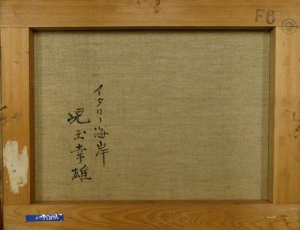 イタリー海岸
児玉幸雄
F6